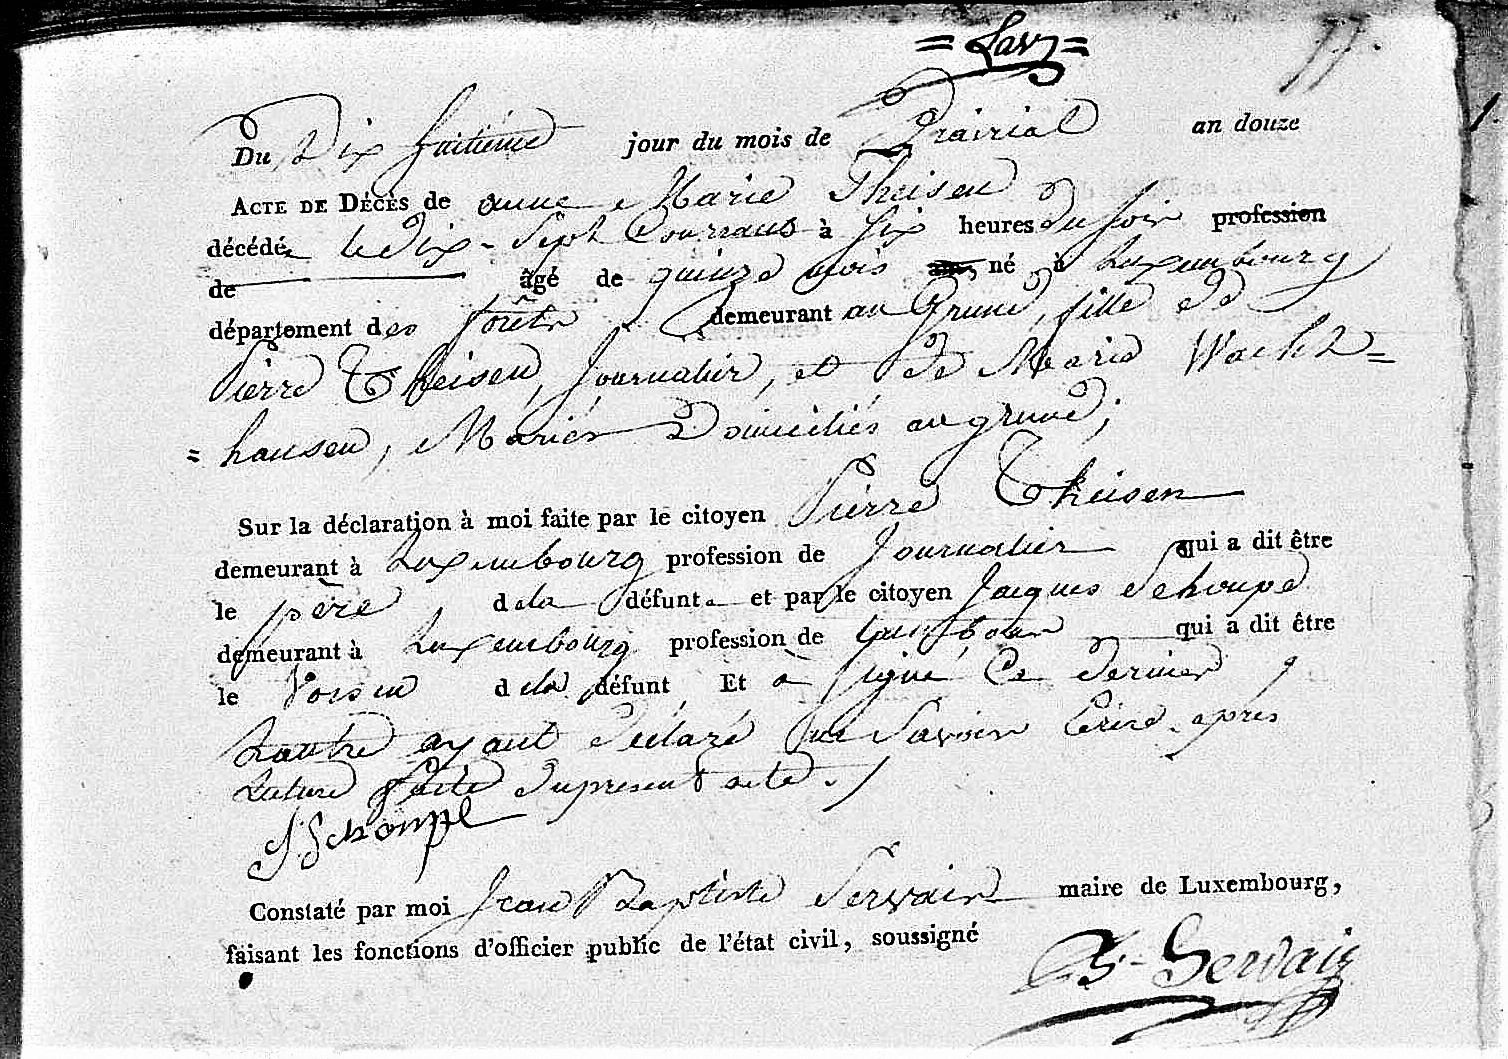 Du Dix huitième jour du mois de Prairial an douze
ACTE DE DÉCÈS de anne Marie Theisen
décédée le Dix-Sept Courrant à Six heures du soir profession
de âgé de quinze mois ans, né à Luxembourg
département des forêts demeurant au Grund, fille de
Pierre Theisen, Journalier, et de Marie Wacht=
=hausen, Mariés Domiciliés au grund;
Sur la déclaration à moi faite par le citoyen Pierre Theisen
demeurant à Luxembourg profession de Journalier qui a dit être
le père de la défunte et par le citoyen Jacques Schoupe
demeurant à Luxembourg profession de tambour qui a dit être
le Voisin de la défunt Et à signé Ce dernier
Lautre ayant déclaré ne Savoir Ecrire après
Lecture faite du present acte.
J. Schoupe
Constaté par moi Jean Baptiste Servais maire de Luxembourg,
faisant les fonctions d'officier public de l'état civil, soussigné
Servais